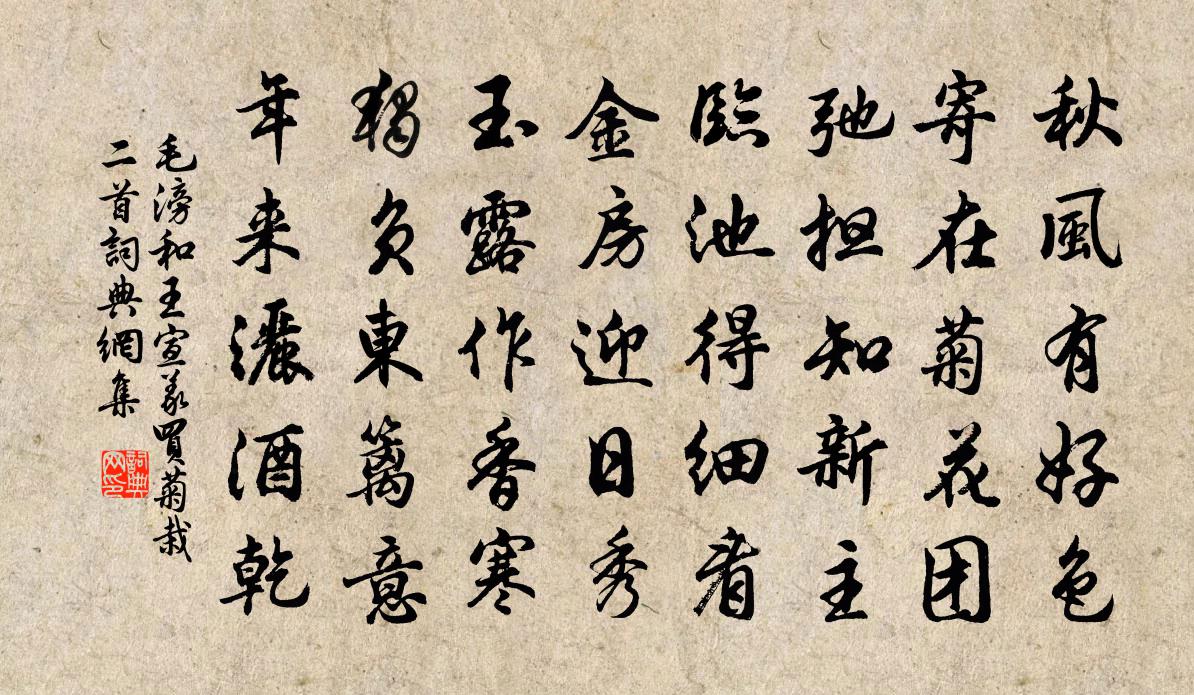 秋風有好色
寄在菊花团
弛担知新主
臨池得細看
金房迎日秀
玉露作香寒
獨負東籬意
年来灑酒乾
毛滂和王宣義買菊栽
二首詞典網集
詞典网印